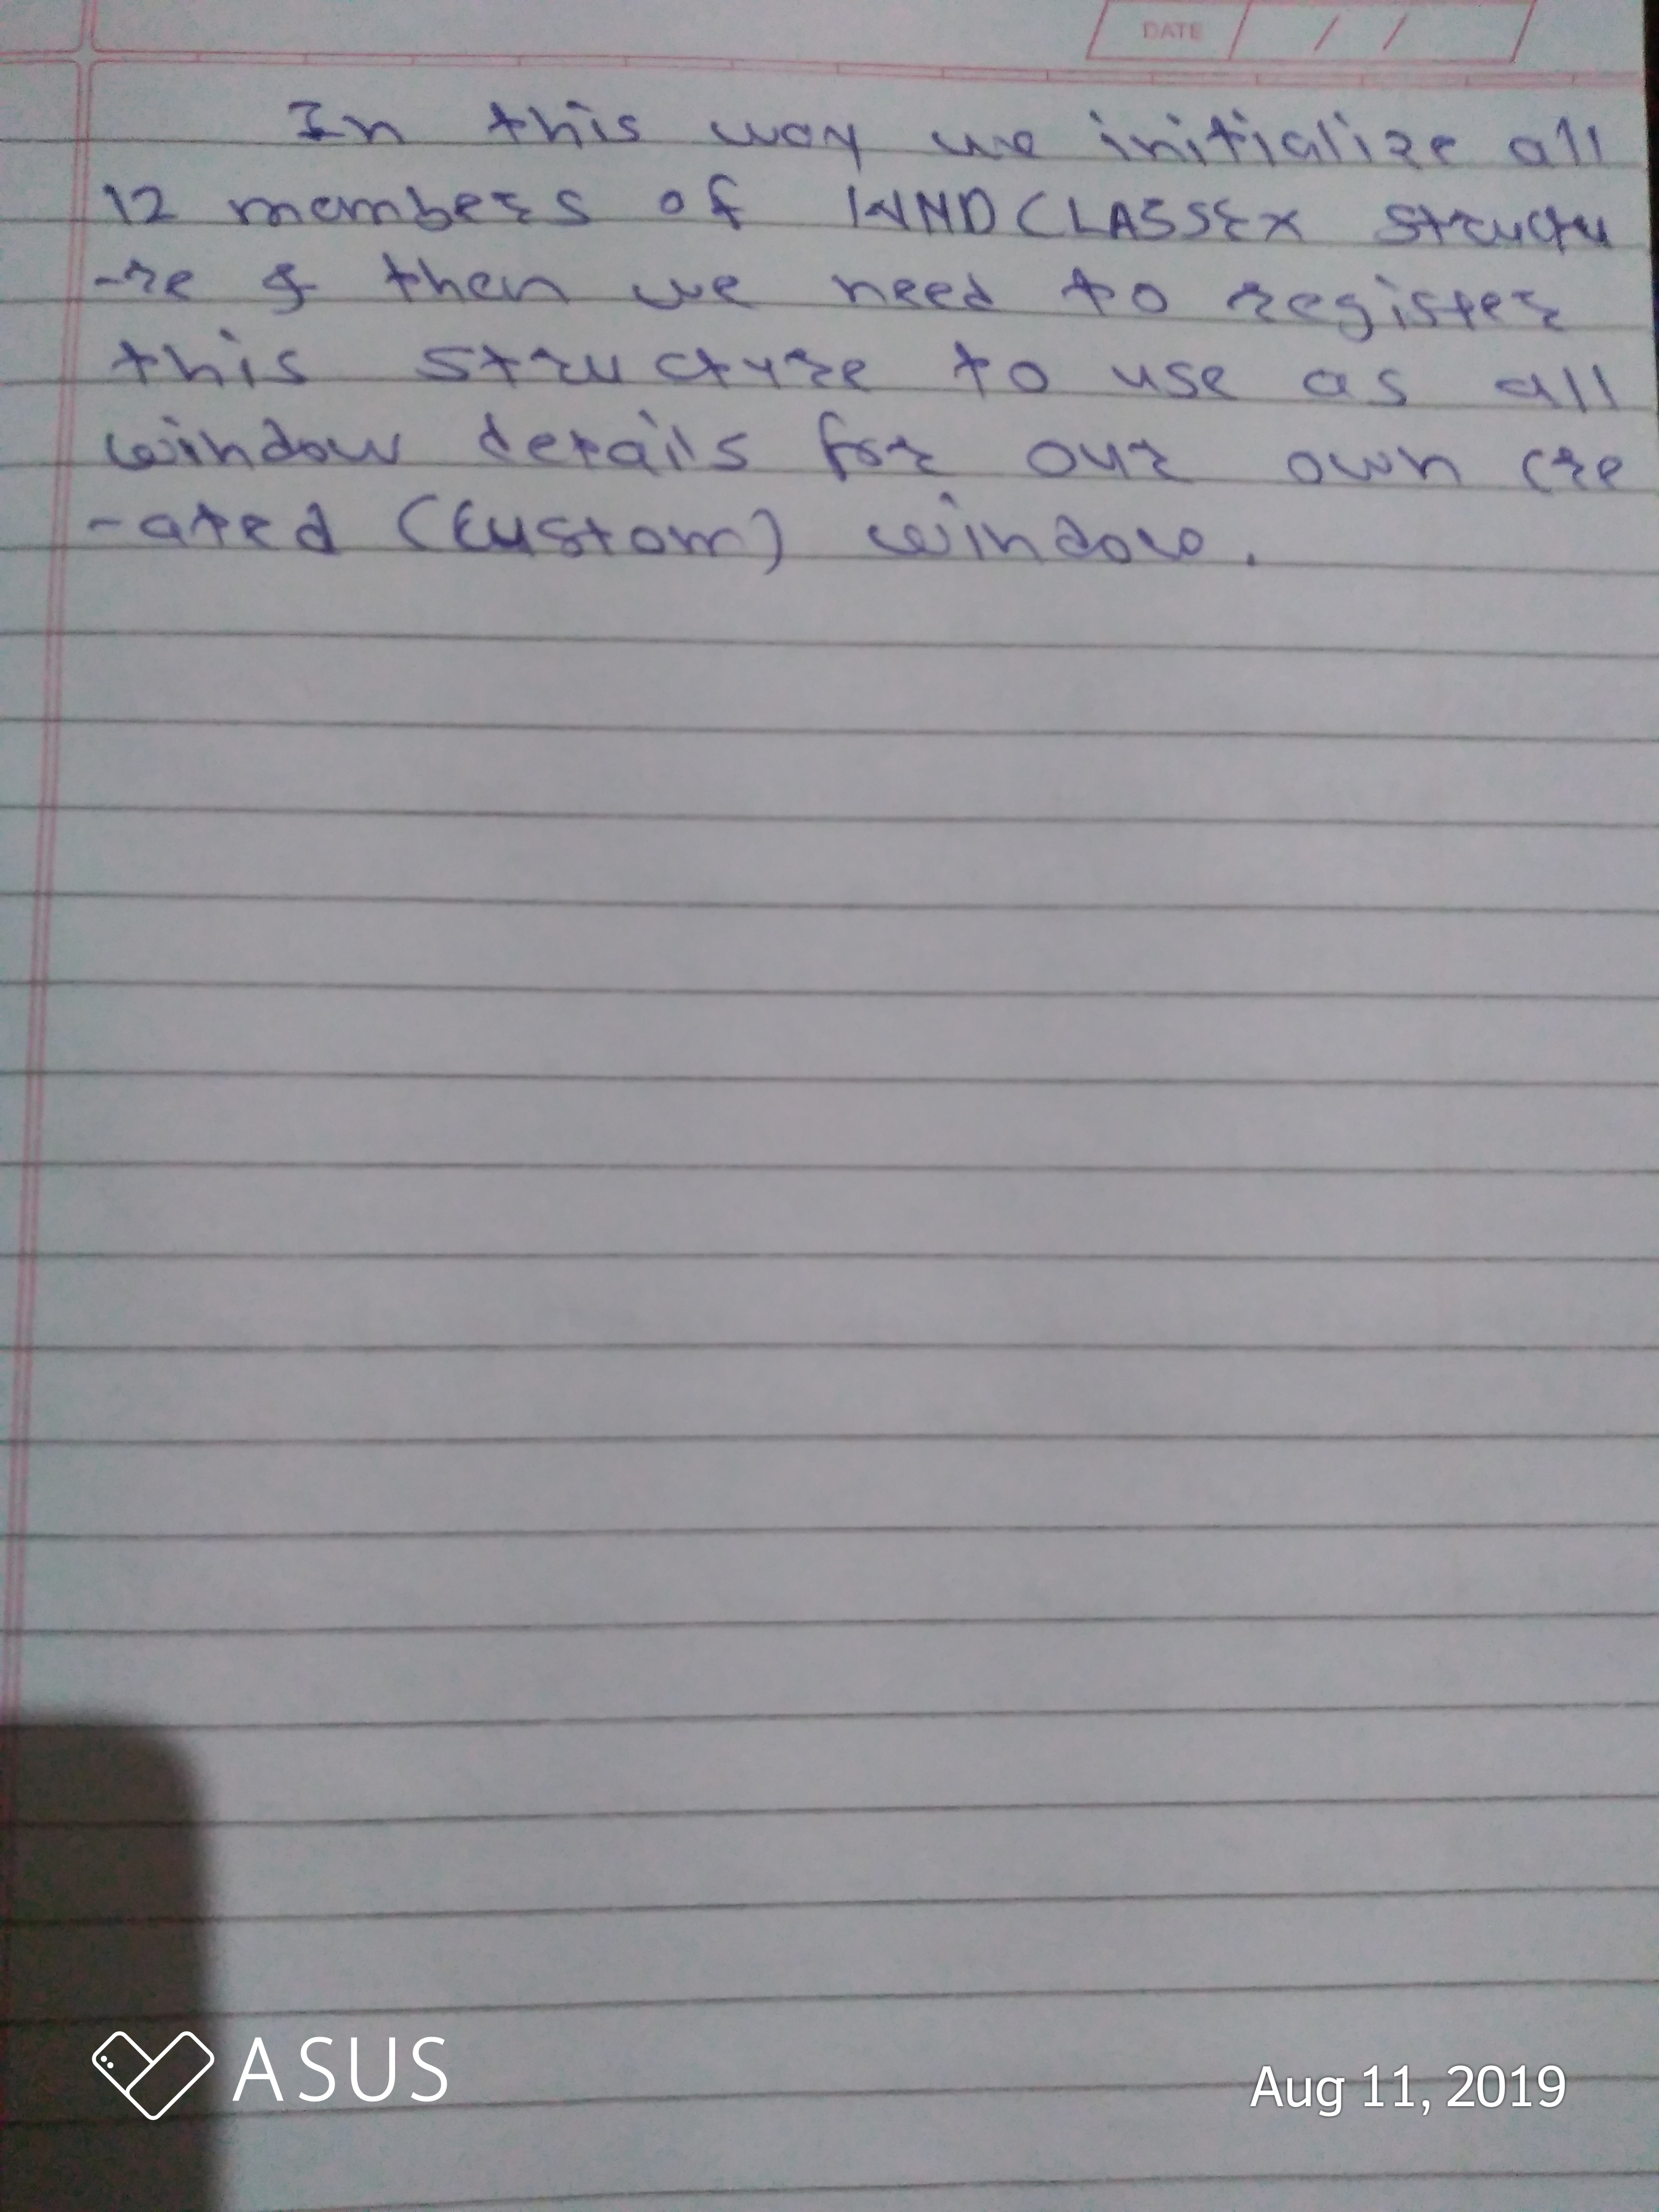 DATE / /
In this way we initialize all
12 members of WNDCLASSEX structu
-re & then we need to register
this structure to use as all
window details for our own cre
-ated (Custom) window.
ASUS
Aug 11, 2019